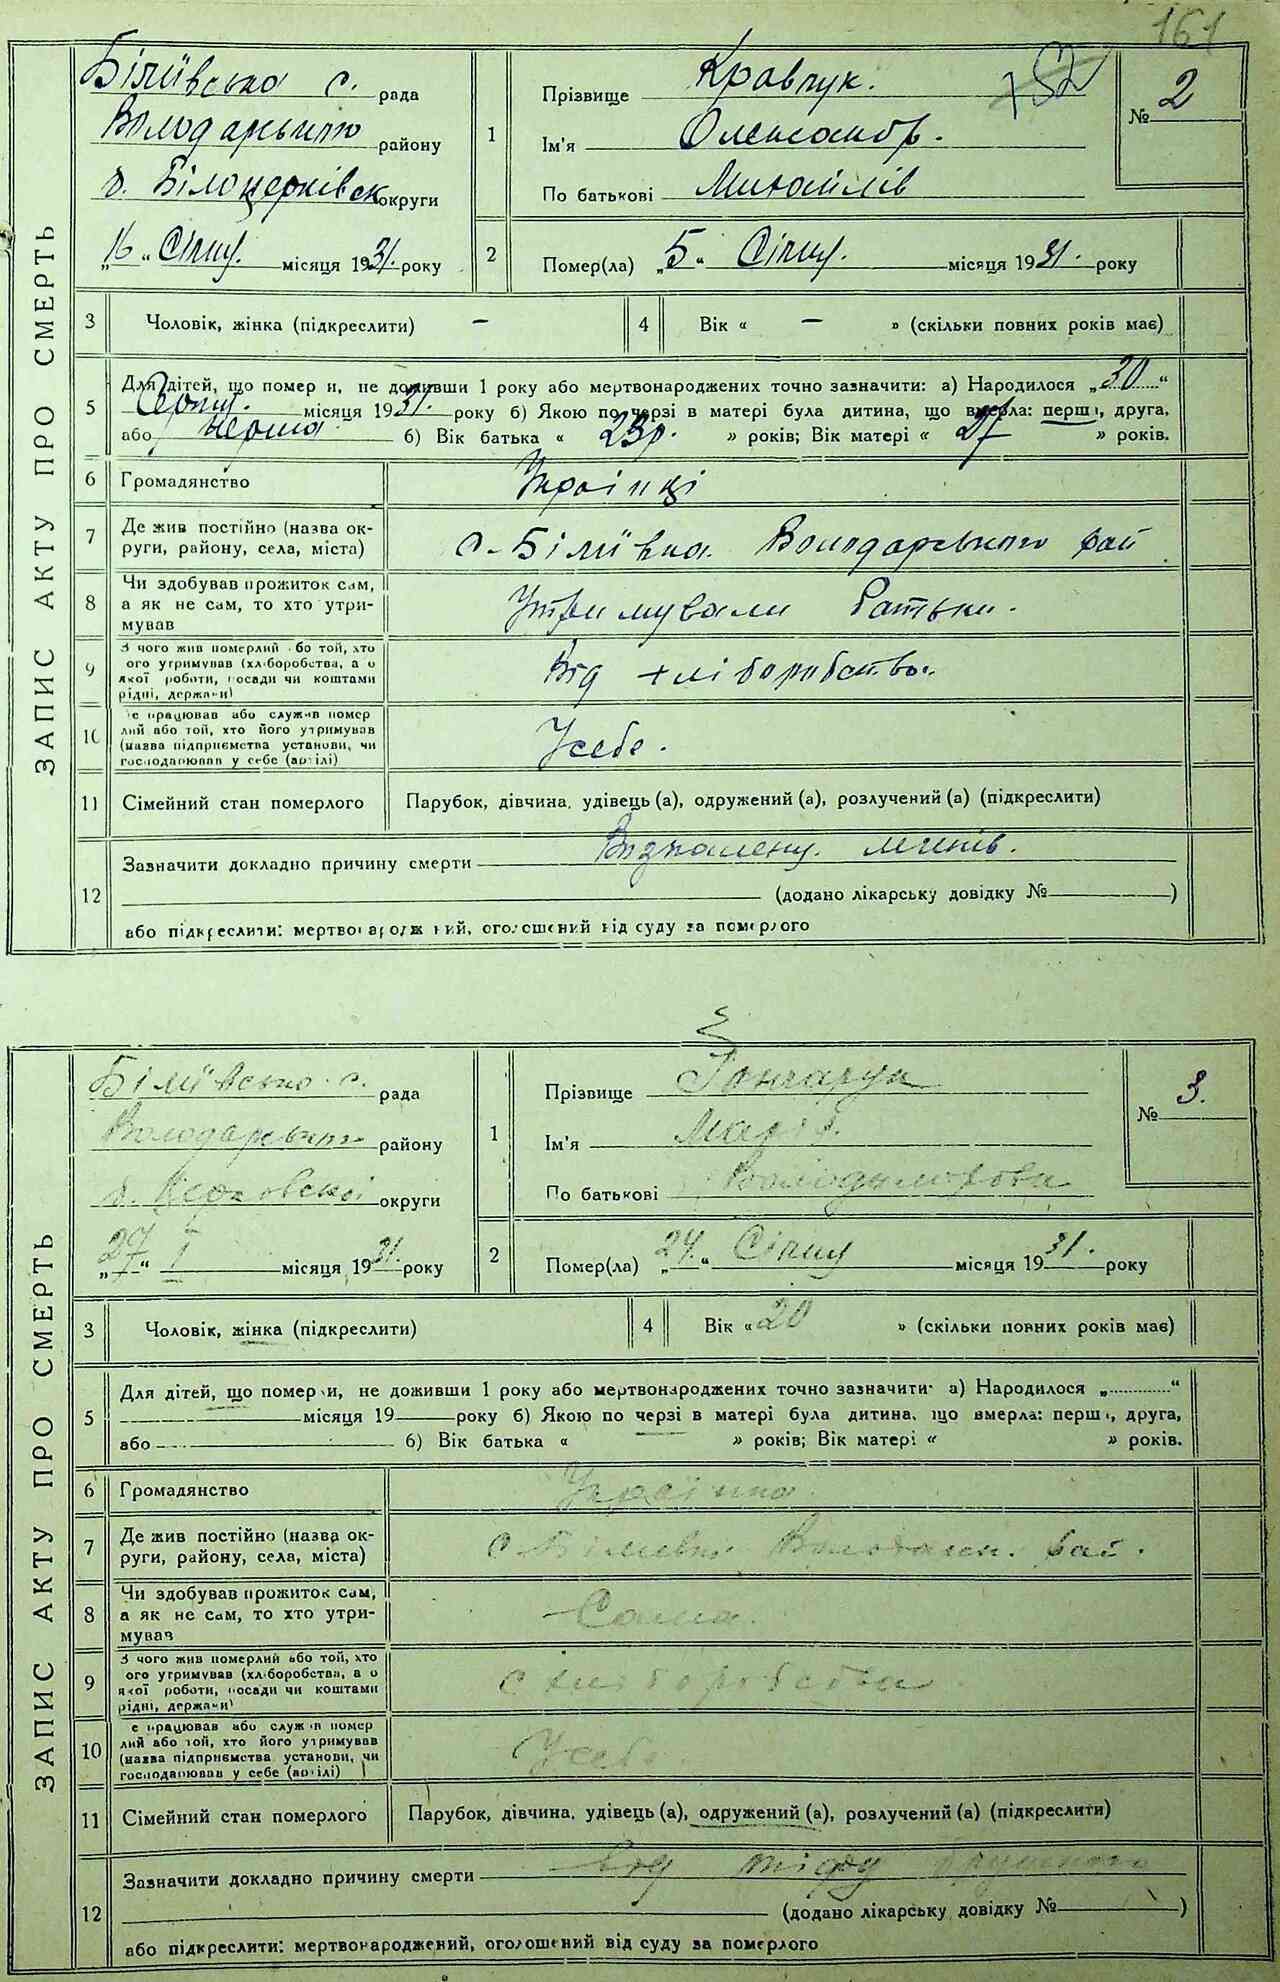 161
ЗАПИС АКТУ ПРО СМЕРТЬ
Біліївська с. рада
Володарського району
б. Білоцерківськ округи
„16“ Січня місяця 1931. року
1
Прізвище Кравчук.
Ім'я Олександр.
По батькові Михайлів
№ 2
2
Помер(ла) „5“ Січня. місяця 1931. року
3
Чоловік, жінка (підкреслити) –
4
Вік « – » (скільки повних років має)
5
Для дітей, що померли, не доживши 1 року або мертвонароджених точно зазначити: а) Народилося „30“
місяця 1931. року б) Якою по черзі в матері була дитина, що вмерла: перша, друга,
або перша б) Вік батька « 23р. » років; Вік матері « 27 » років.
6
Громадянство
Українці
7
Де жив постійно (назва ок-
руги, району, села, міста)
с. Біліївка Володарського рай
8
Чи здобував прожиток сам,
а як не сам, то хто утри-
мував
Утримували батьки.
9
З чого жив померлий або той, хто
його утримував (хліборобства, а о
якої роботи, посади чи коштами
рідні, держави)
Від хліборобства.
10
Де працював або служив помер
лий або той, хто його утримував
(назва підприємства установи, чи
господарював у себе (артілі)
Усебе.
11
Сімейний стан померлого
Парубок, дівчина, удівець (а), одружений (а), розлучений (а) (підкреслити)
12
Зазначити докладно причину смерти легенів.
(додано лікарську довідку № )
або підкреслити: мертвонароджений, оголошений від суду за померлого
ЗАПИС АКТУ ПРО СМЕРТЬ
Біліївсько с. рада
Володарського району
б. округи
„27“ I місяця 1931. року
1
Прізвище Гончарук
Ім'я Марія.
По батькові Володимирова
№ 3.
2
Помер(ла) „24.“ Січня місяця 1931. року
3
Чоловік, жінка (підкреслити)
4
Вік « 20 » (скільки повних років має)
5
Для дітей, що померли, не доживши 1 року або мертвонароджених точно зазначити: а) Народилося „ “
місяця 19 року б) Якою по черзі в матері була дитина, що вмерла: перша, друга,
або б) Вік батька « » років; Вік матері « » років.
6
Громадянство
Українка
7
Де жив постійно (назва ок-
руги, району, села, міста)
с Білиевка рай.
8
Чи здобував прожиток сам,
а як не сам, то хто утри-
мував
Сама.
9
З чого жив померлий або той, хто
його утримував (хліборобства, а о
якої роботи, посади чи коштами
рідні, держави)
с хліборобства
10
Де працював або служив помер
лий або той, хто його утримував
(назва підприємства установи, чи
господарював у себе (артілі)
Усебе.
11
Сімейний стан померлого
Парубок, дівчина, удівець (а), одружений (а), розлучений (а) (підкреслити)
12
Зазначити докладно причину смерти
(додано лікарську довідку № )
або підкреслити: мертвонароджений, оголошений від суду за померлого